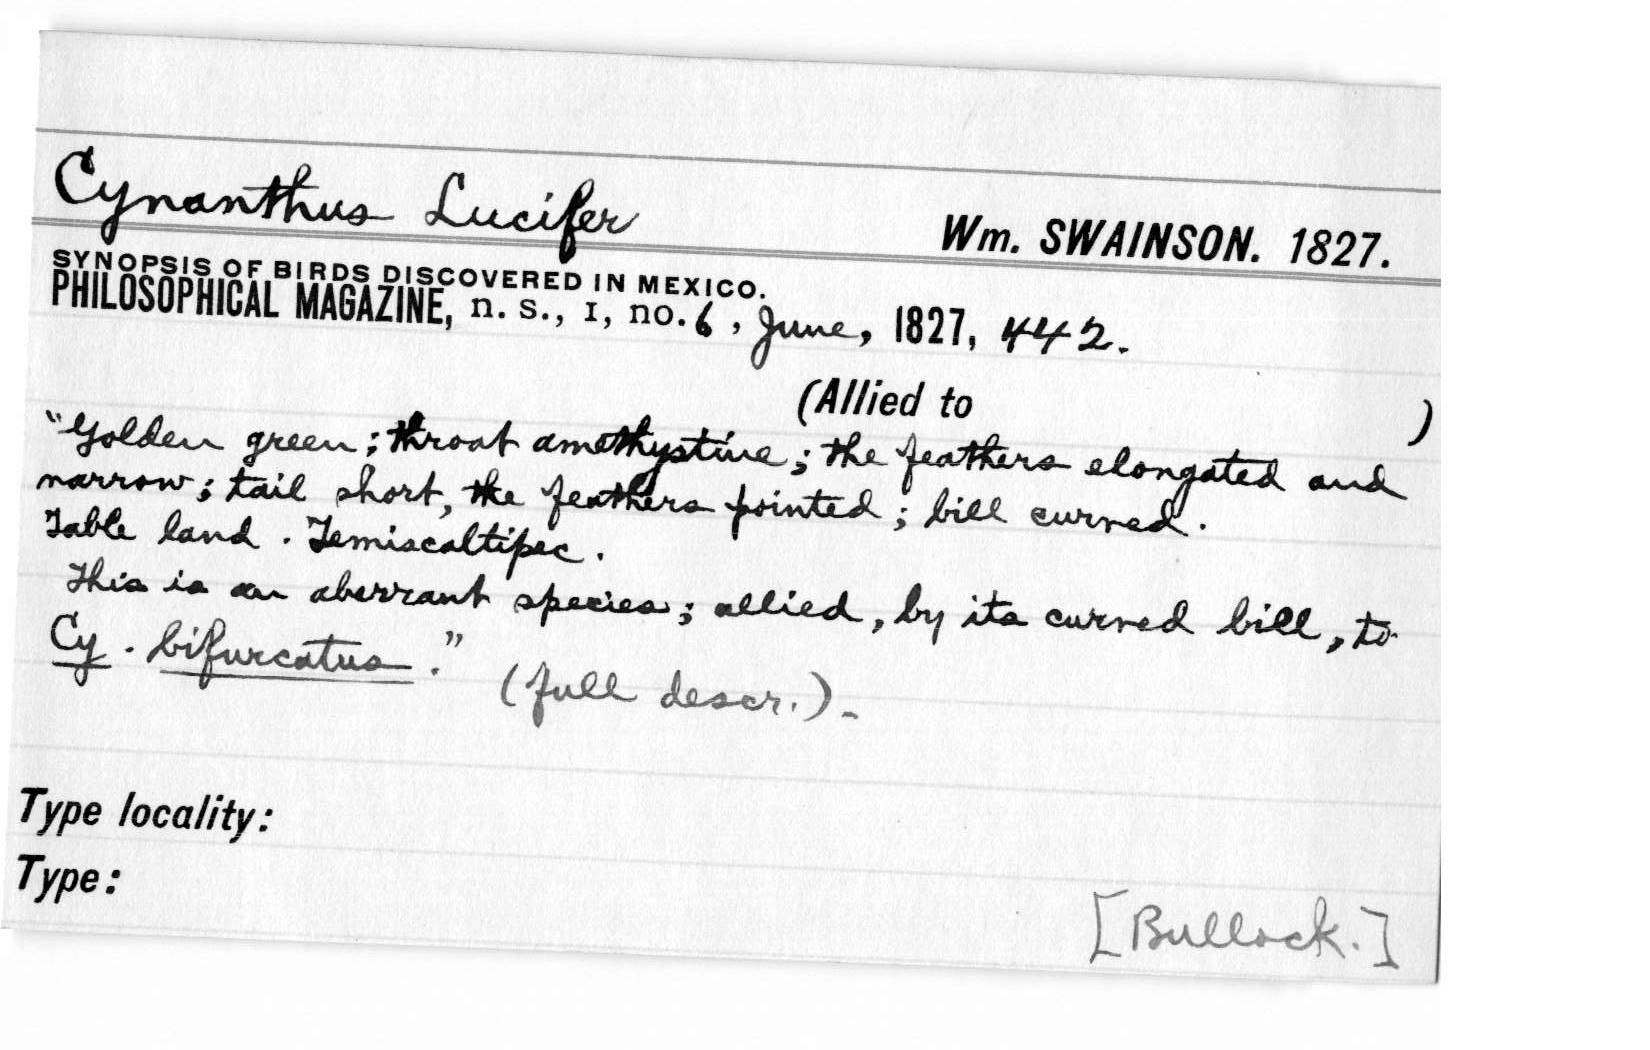 Cynanthus Lucifer Wm. SWAINSON. 1827.
SYNOPSIS OF BIRDS DISCOVERED IN MEXICO.
PHILOSOPHICAL MAGAZINE, n. s., I, no. 6, June, 1827, 442.
(Allied to )
"Golden green; throat amethystine; the feathers elongated and
narrow; tail short, the feathers pointed; bill curved.
Table land. Temiscaltipec.
This is an aberrant species; allied, by its curved bill, to
Cy. bifurcatus." (full descr.)-
Type locality:
Type:
[Bullock.]